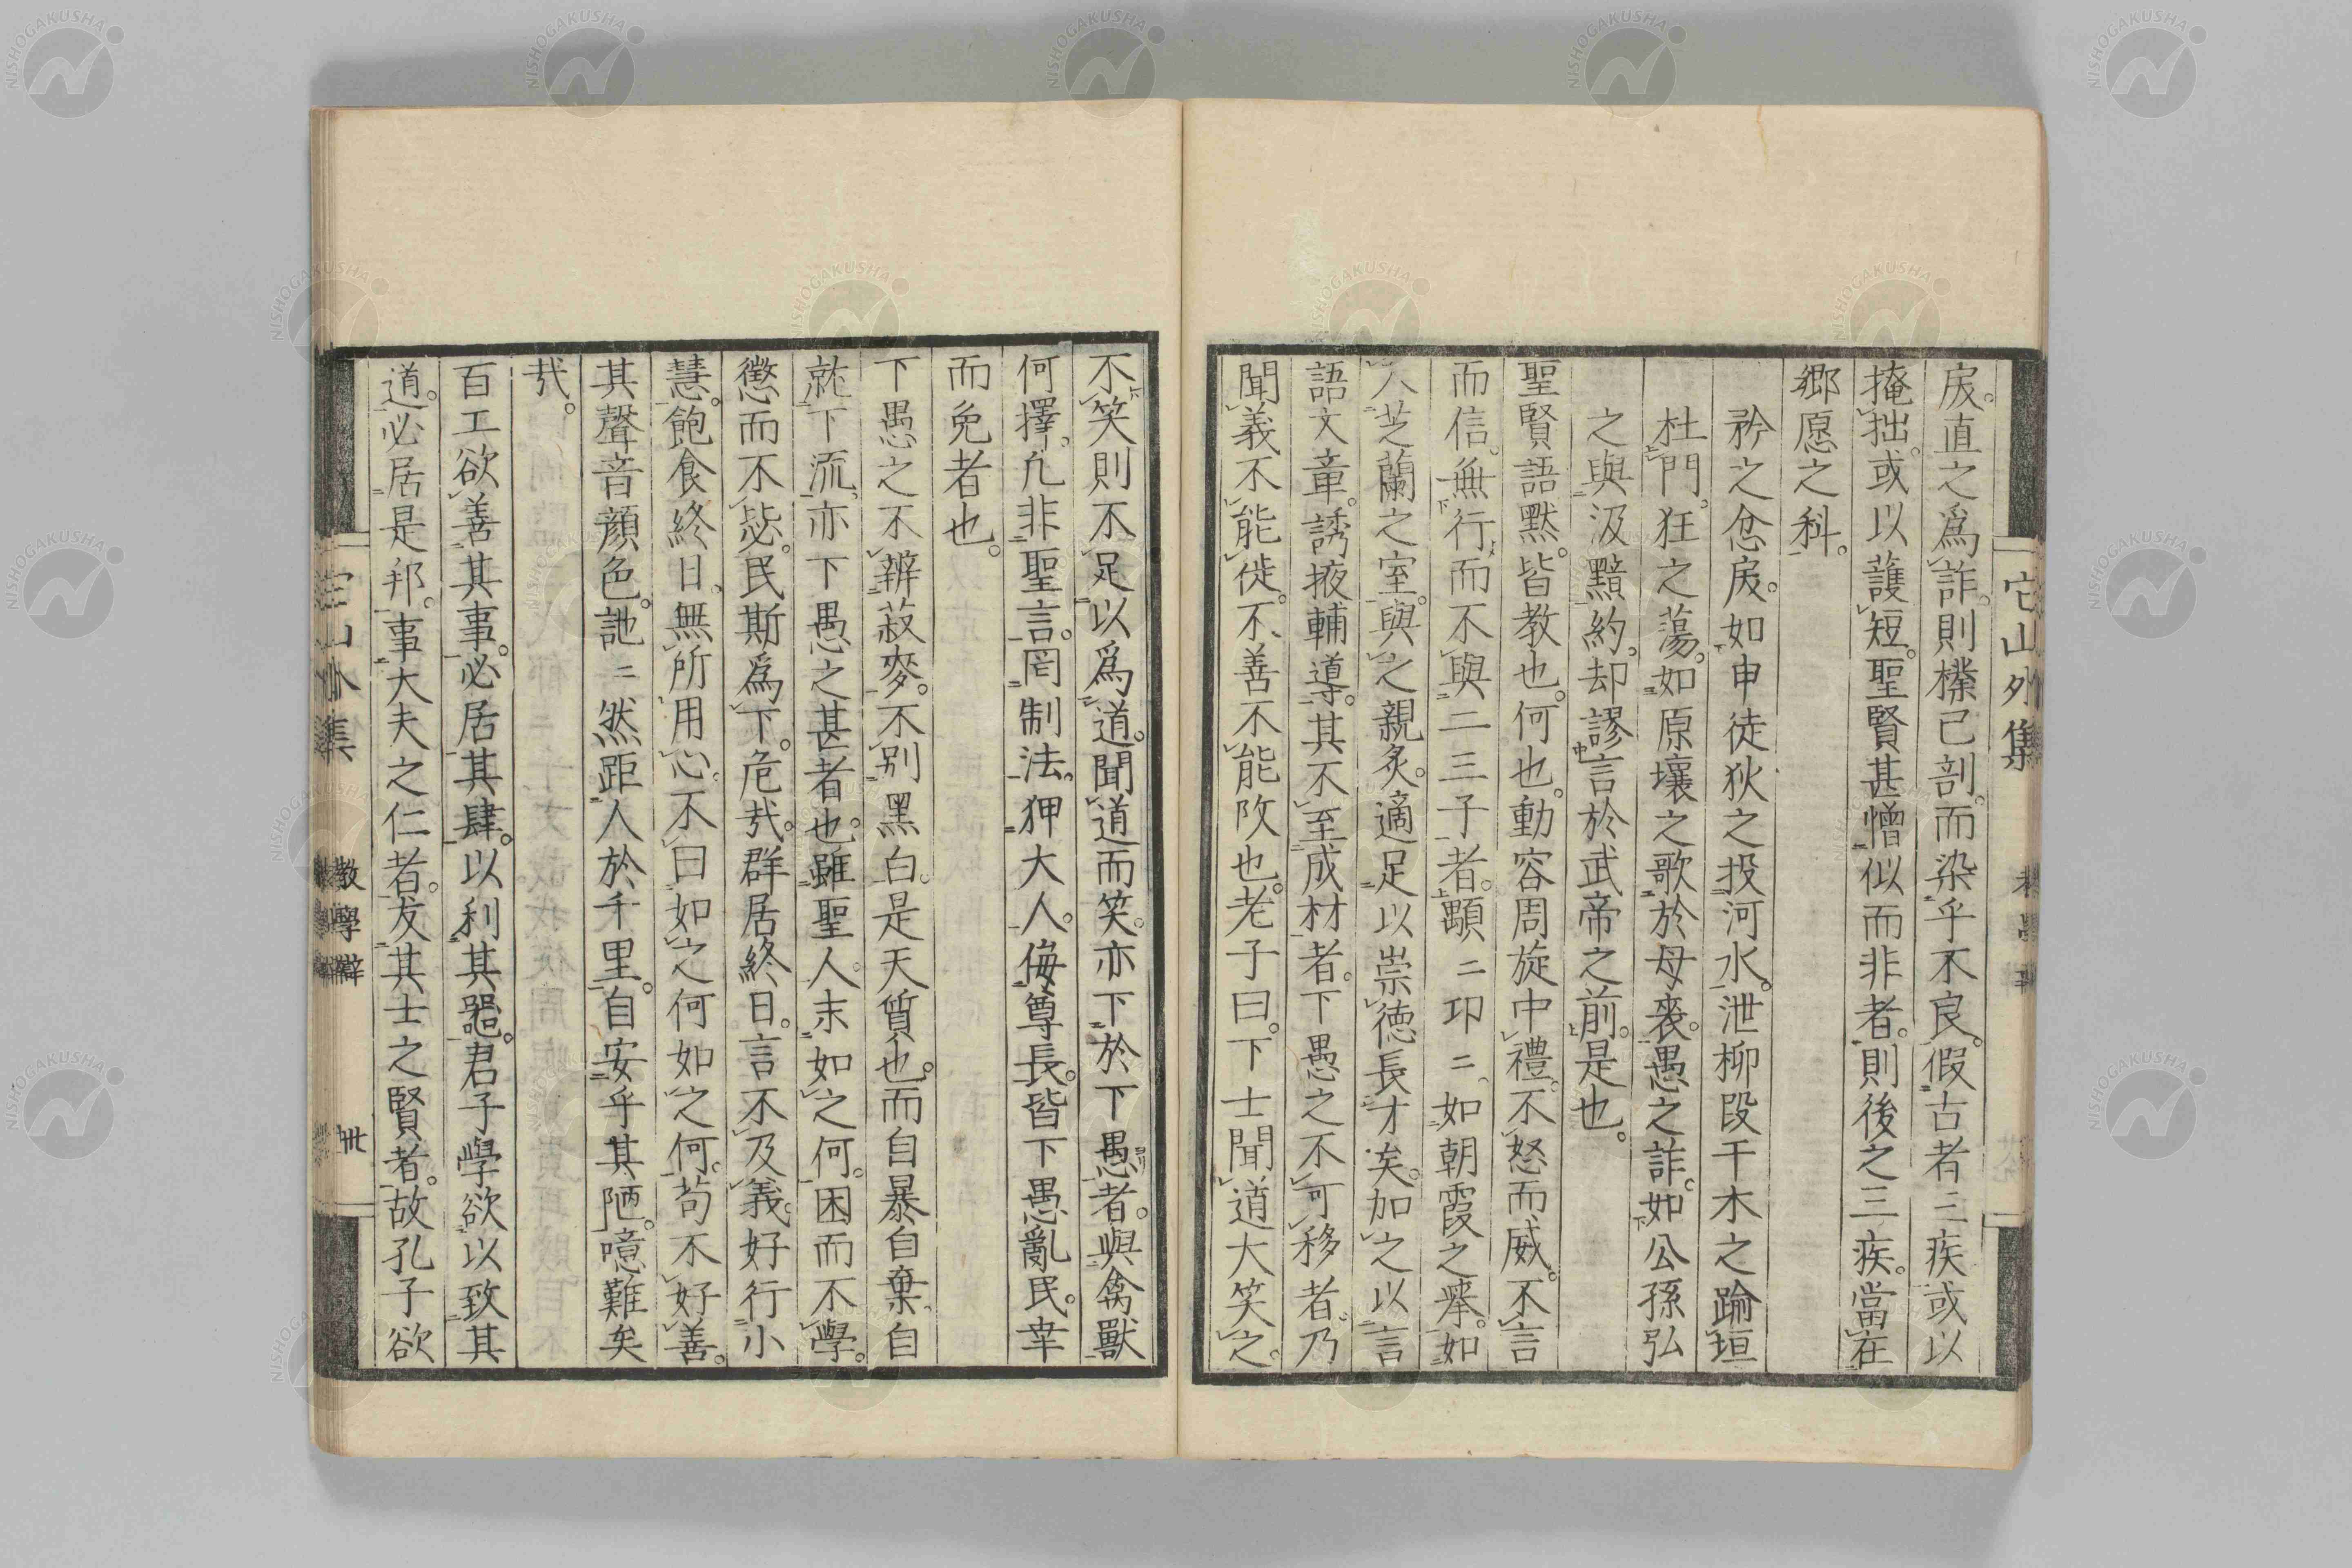 戾。直之爲詐。則檪已剖。而染乎不良。假古者三疾或以
掩拙。或以護短。聖賢甚憎似而非者。則後之三疾。當在
鄉愿之科。
矜之忿戾。如申徒狄之投河水。泄柳段干木之踰垣
杜門。狂之蕩。如原壤之歌於母喪。愚之詐。如公孫弘
之與汲黯約。却謬言於武帝之前。是也。
聖賢語默。皆教也。何也。動容周旋中禮。不怒而威。不言
而信。無行而不與二三子者。顒二卬二。如朝霞之擧。如
入芝蘭之室。與之親炙。適足以崇德長才矣。加之以言
語文章。誘掖輔導。其不至成材者。下愚之不可移者。乃
聞義不能徙。不善不能改也。老子曰。下士聞道大笑之。
它山外集
不笑則不足以爲道。聞道而笑。亦下於下愚者。與禽獸
何擇。凢非聖言。罔制法。狎大人。侮尊長。皆下愚亂民。幸
而免者也。
下愚之不辨菽麥。不別黑白。是天質也。而自暴自棄。自
就下流。亦下愚之甚者也。雖聖人末如之何。困而不學。
懲而不毖。民斯爲下。危㢤。群居終日。言不及義。好行小
慧。飽食終日。無所用心。不曰如之何如之何。苟不好善。
其聲音顔色。訑二然距人於千里。自安乎其陋。噫難矣
㢤。
百工欲善其事。必居其肆。以利其器。君子學欲以致其
道。必居是邦。事大夫之仁者。友其士之賢者。故孔子欲
它山外集 教學辯 卅